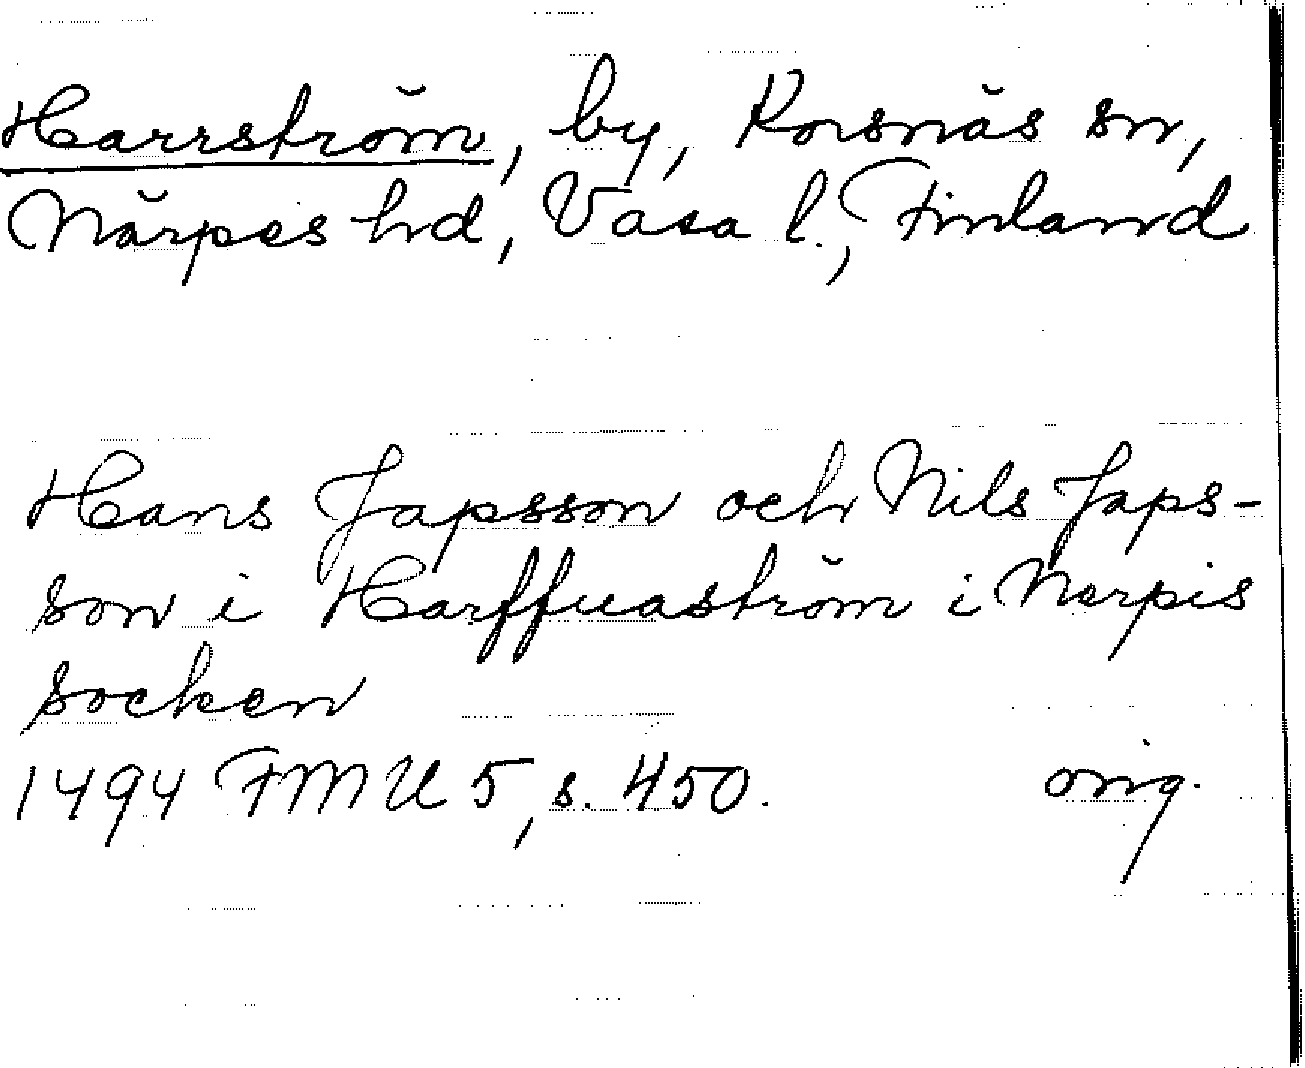 Harrström, by, Korsnäs sn,
Närpes hd, Vasa l., Finland
Hans Japsson och Nils Japs-
son i Harffuaström i Nerpis
socken
1494 FMU 5, s. 450. orig.